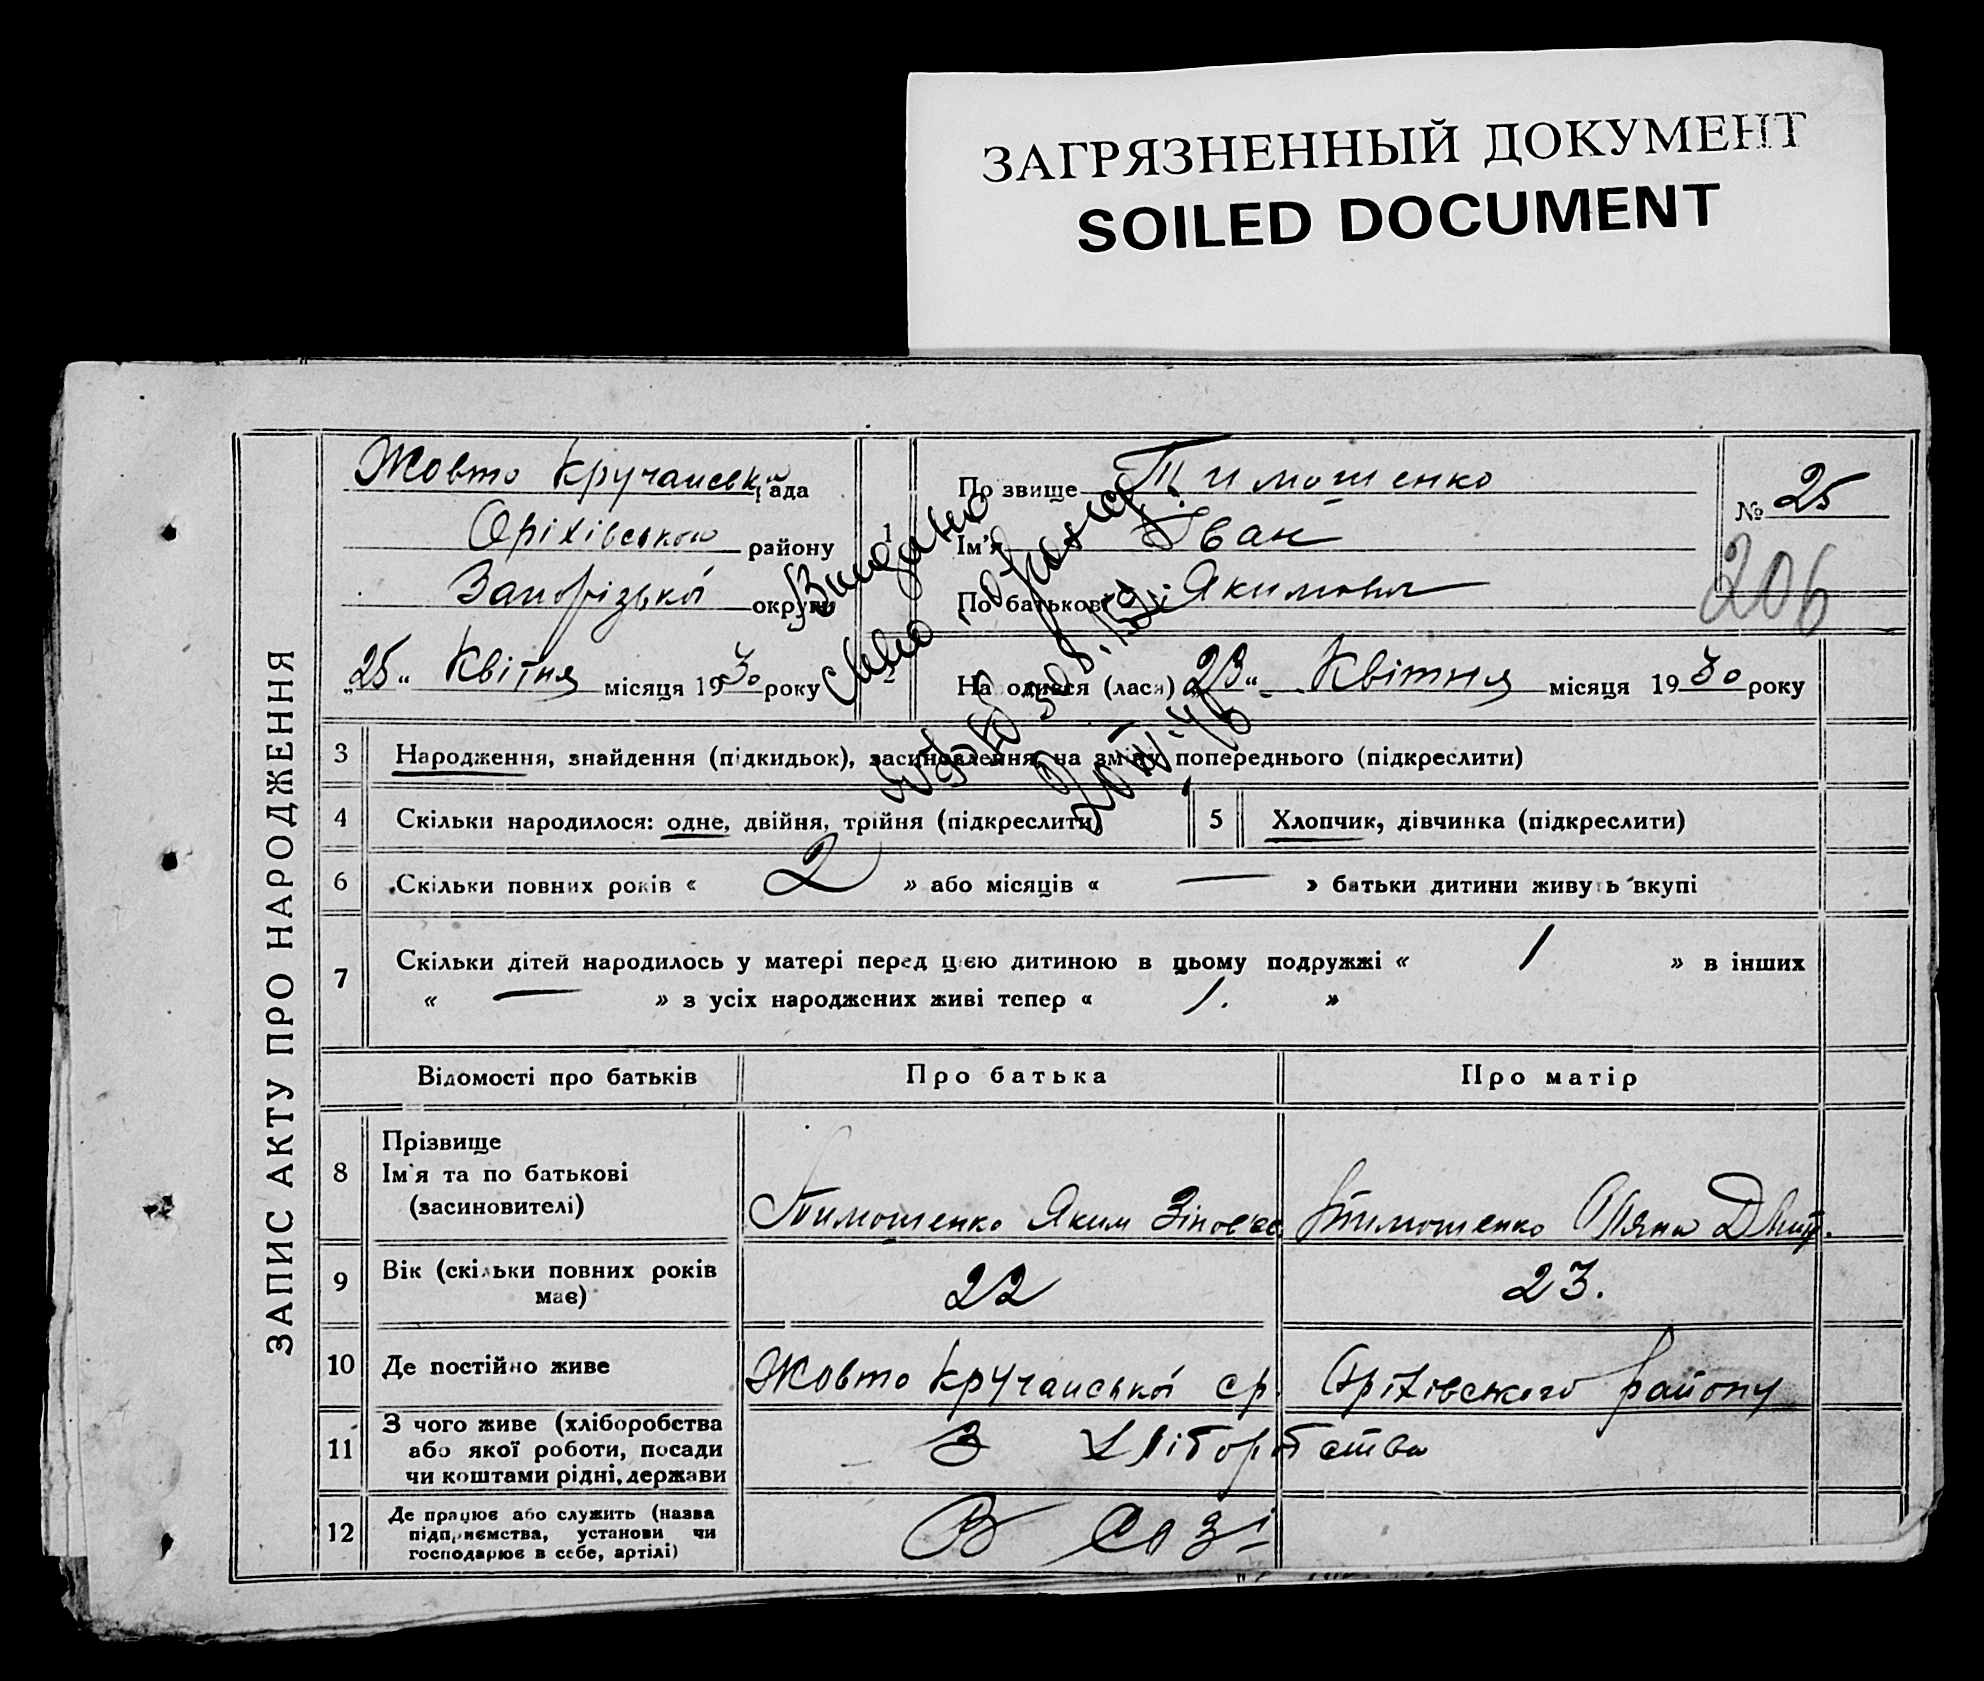 ЗАГРЯЗНЕННЫЙ ДОКУМЕНТ
SOILED DOCUMENT
ЗАПИС АКТУ ПРО НАРОДЖЕННЯ
Жовто Кручанська рада
Оріхівського району
Запорізької округи
„25“ Квітня місяця 1930 року
1
Прізвище Тимошенко
Ім'я Іван
По батькові Якимович
№ 25
206
2
Народився (лася) „23“ Квітня місяця 1930 року
Видано
3 Народження, знайдення (підкидьок), засиновлення, на зміну попереднього (підкреслити)
4 Скільки народилося: одне, двійня, трійня (підкреслити)
5 Хлопчик, дівчинка (підкреслити)
6 Скільки повних років « 2 » або місяців « — » батьки дитини живуть вкупі
7 Скільки дітей народилось у матері перед цією дитиною в цьому подружжі « 1 » в інших
« — » з усіх народжених живі тепер « 1. »
Відомості про батьків Про батька Про матір
8 Прізвище
Ім'я та по батькові
(засиновителі)
Тимошенко Яким Зінов'єв. Тимошенко Дмит.
9 Вік (скільки повних років
має)
22 23.
10 Де постійно живе Жовто Кручанської ср. Оріхівського району
11 З чого живе (хліборобства
або якої роботи, посади
чи коштами рідні, держави
З хліборобства
12 Де працює або служить (назва
підприємства, установи чи
господарює в себе, артілі)
В Созі